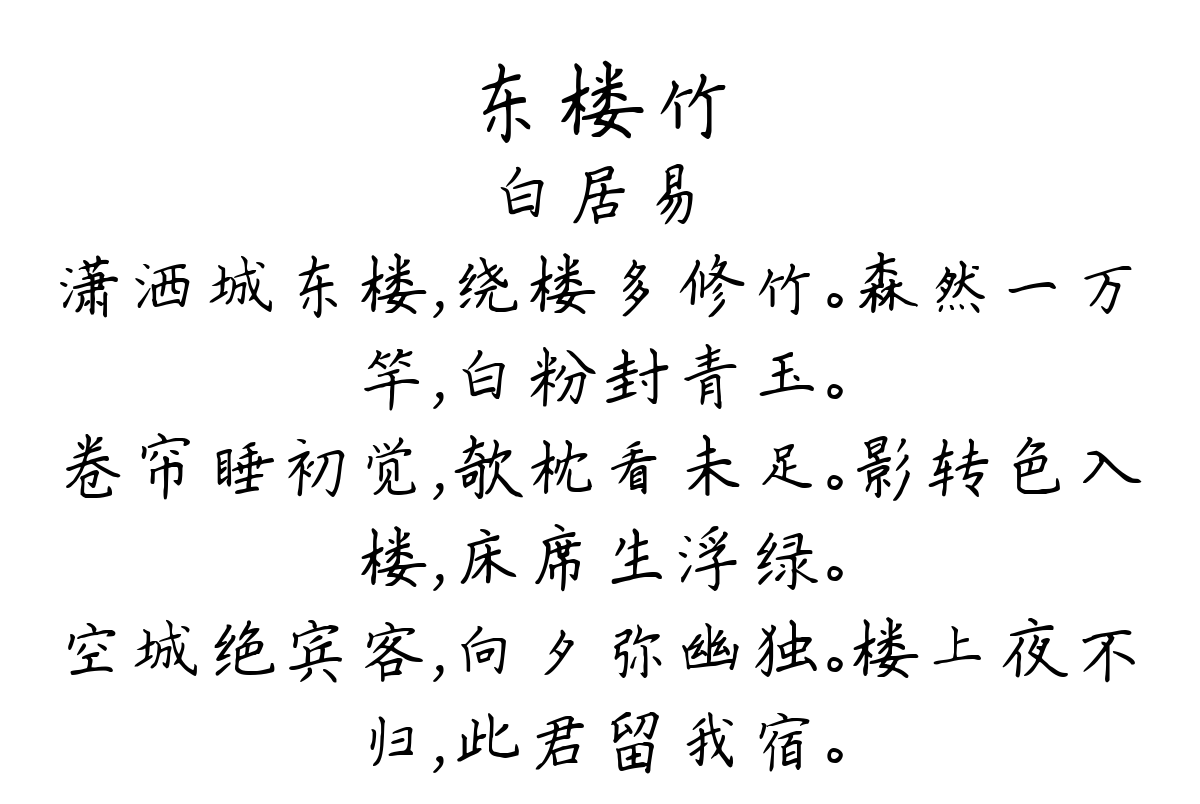 东楼竹
白居易
潇洒城东楼,绕楼多修竹。森然一万
竿,白粉封青玉。
卷帘睡初觉,欹枕看未足。影转色入
楼,床席生浮绿。
空城绝宾客,向夕弥幽独。楼上夜不
归,此君留我宿。